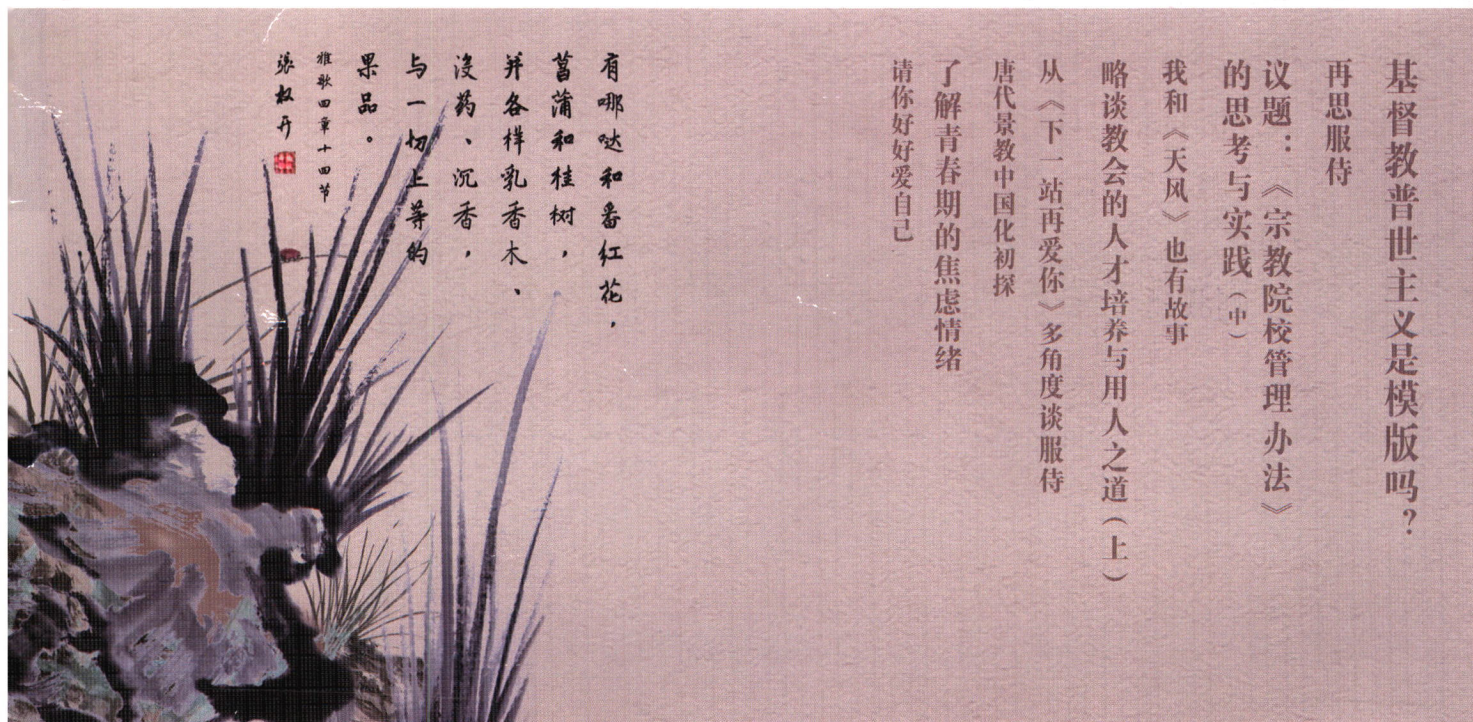 基督教普世主义是模版吗？
再思服侍
议题：《宗教院校管理办法》
的思考与实践（中）
我和《天风》也有故事
略谈教会的人才培养与用人之道（上）
从《下一站再爱你》多角度谈服侍
唐代景教中国化初探
了解青春期的焦虑情绪
请你好好爱自己
有哪哒和番红花，
菖蒲和桂树，
并各样乳香木、
没药、沉香，
与一切上等的
果品。
雅歌四章十四节
張权开